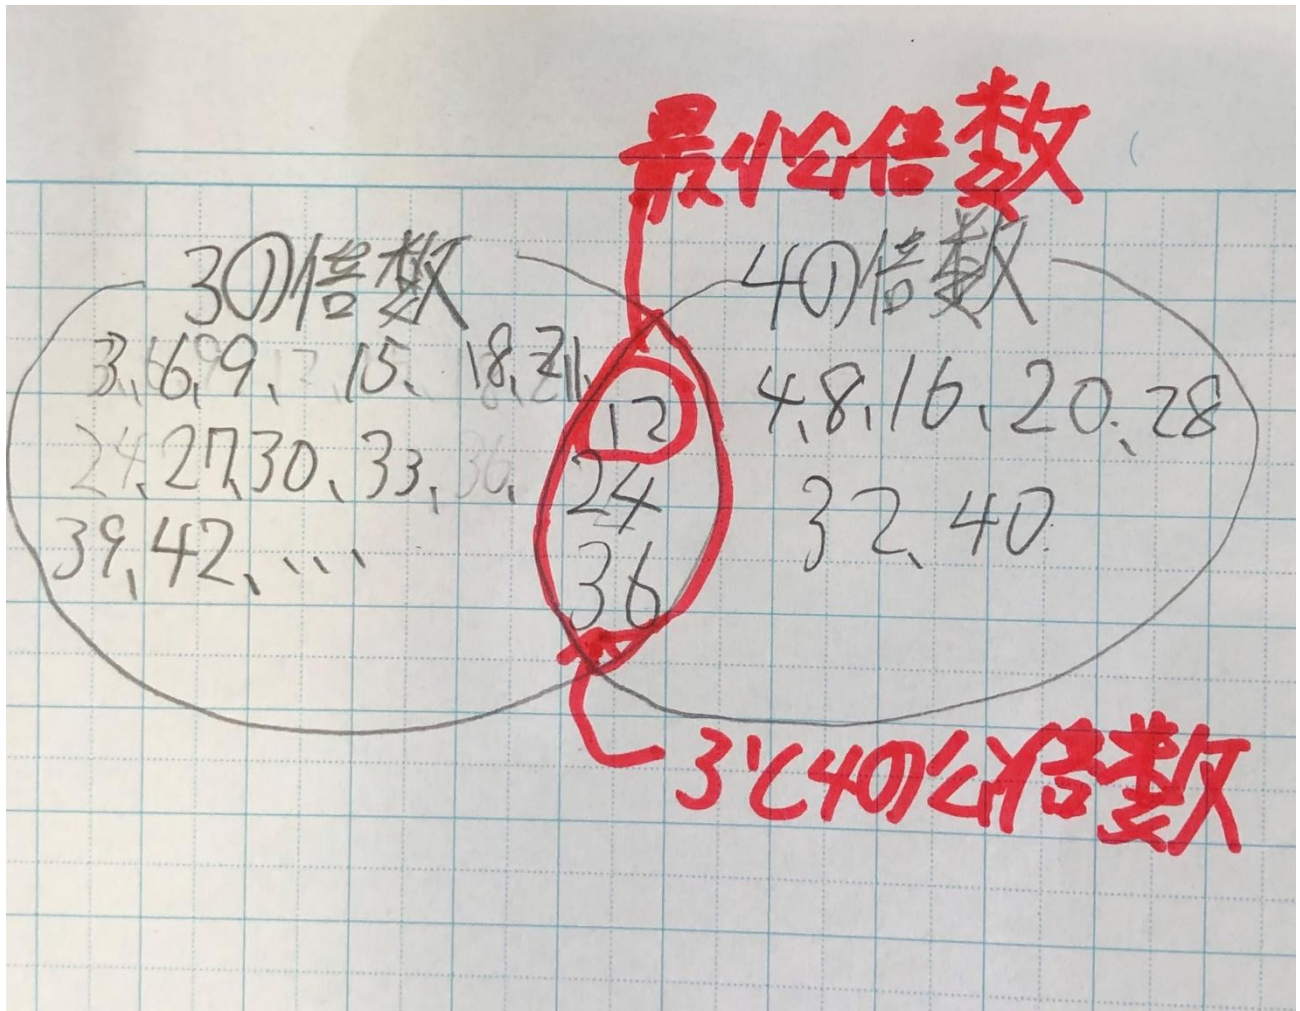 最小公倍数
3の倍数
4の倍数
3、6、9、15、18、21、
24、27、30、33、36、
39、42、...
12
24
36
4、8、16、20、28
32、40
3と4の公倍数